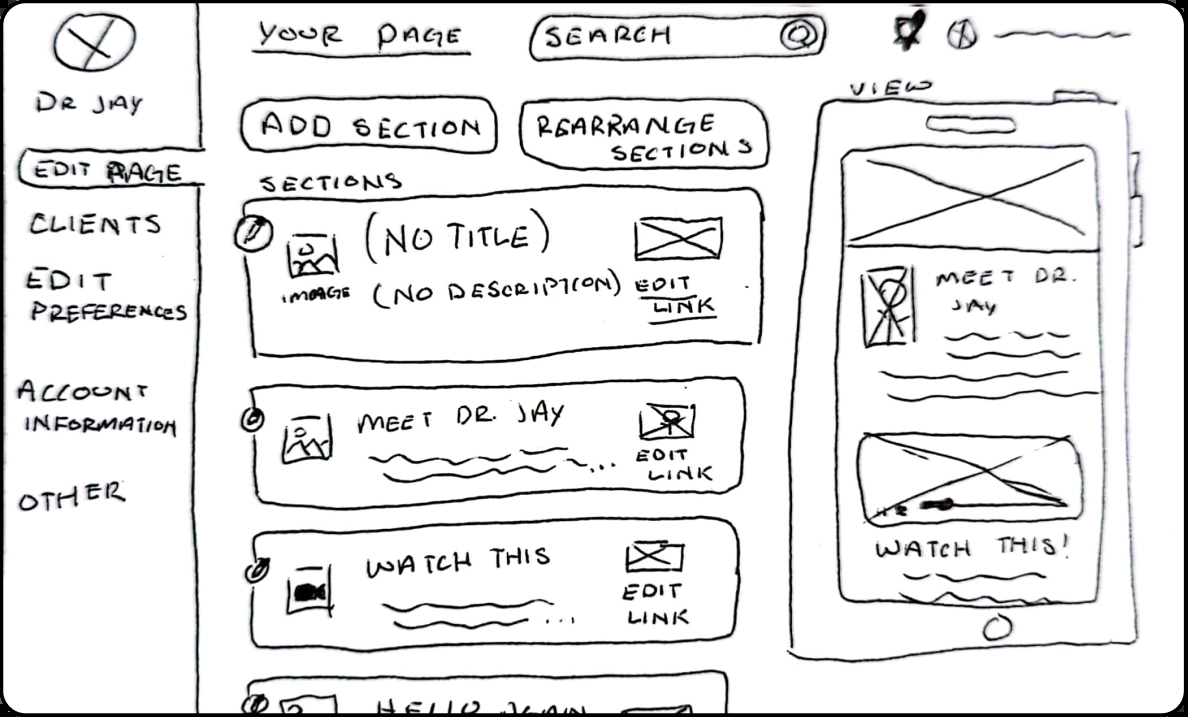 DR JAY
EDIT PAGE
CLIENTS
EDIT
PREFERENCES
ACCOUNT
INFORMATION
OTHER
YOUR PAGE
SEARCH
ADD SECTION
REARRANGE
SECTIONS
SECTIONS
(NO TITLE)
IMAGE
(NO DESCRIPTION)
EDIT
LINK
MEET DR. JAY
...
EDIT
LINK
WATCH THIS
...
EDIT
LINK
HELLO AGAIN
VIEW
MEET DR.
JAY
WATCH THIS!